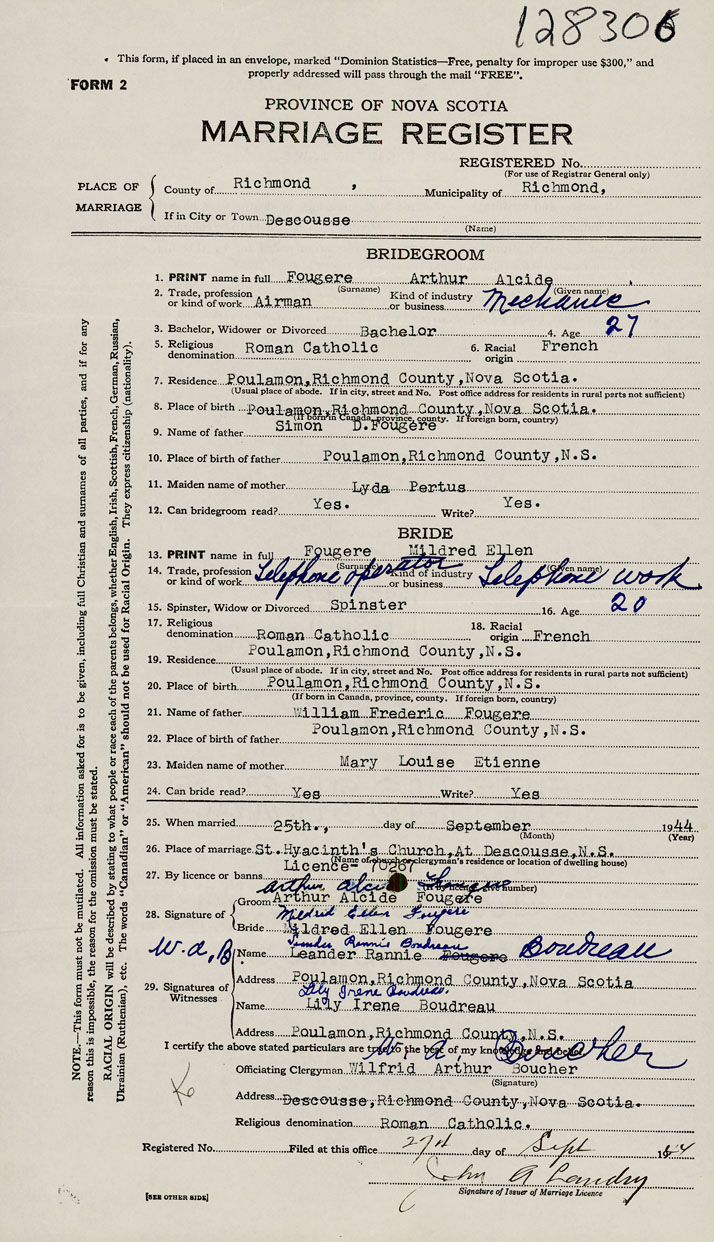 128306
• This form, if placed in an envelope, marked "Dominion Statistics—Free, penalty for improper use $300," and
properly addressed will pass through the mail "FREE".
FORM 2
PROVINCE OF NOVA SCOTIA
MARRIAGE REGISTER
REGISTERED No.
(For use of Registrar General only)
PLACE OF MARRIAGE
County of Richmond , Municipality of Richmond,
If in City or Town Descousse
(Name)
BRIDEGROOM
1. PRINT name in full Fougere Arthur Alcide .
(Surname) (Given name)
2. Trade, profession or kind of work Airman Kind of industry or business Mechanic
3. Bachelor, Widower or Divorced Bachelor 4. Age 27
5. Religious denomination Roman Catholic 6. Racial origin French
7. Residence Poulamon,Richmond County,Nova Scotia.
(Usual place of abode. If in city, street and No. Post office address for residents in rural parts not sufficient)
8. Place of birth Poulamon,Richmond County,Nova Scotia.
(If born in Canada, province, county. If foreign born, country)
9. Name of father Simon D.Fougere
10. Place of birth of father Poulamon,Richmond County,N.S.
11. Maiden name of mother Lyda Pertus
12. Can bridegroom read? Yes. Write? Yes.
BRIDE
13. PRINT name in full Fougere Mildred Ellen
(Surname) (Given name)
14. Trade, profession or kind of work Telephone operator Kind of industry or business Telephone work
15. Spinster, Widow or Divorced Spinster 16. Age 20
17. Religious denomination Roman Catholic 18. Racial origin French
19. Residence Poulamon,Richmond County,N.S.
(Usual place of abode. If in city, street and No. Post office address for residents in rural parts not sufficient)
20. Place of birth Poulamon,Richmond County,N.S.
(If born in Canada, province, county. If foreign born, country)
21. Name of father William Frederic Fougere
22. Place of birth of father Poulamon,Richmond County,N.S.
23. Maiden name of mother Mary Louise Etienne
24. Can bride read? Yes Write? Yes
25. When married 25th., day of September 1944
(Month) (Year)
26. Place of marriage St.Hyacinth's Church,At Descousse,N.S.
(Name of church or clergyman's residence or location of dwelling house)
27. By licence or banns Licence- 70267
Arthur Alcide Fougere
28. Signature of Groom Arthur Alcide Fougere
Mildred Ellen Fougere
Bride Mildred Ellen Fougere
Leander Rannie Boudreau
W.a.B Name Leander Rannie Fougere Boudreau
29. Signatures of Witnesses
Address Poulamon,Richmond County,Nova Scotia
Lily Irene Boudreau.
Name Lily Irene Boudreau
Address Poulamon,Richmond County,N.S.
I certify the above stated particulars are true to the best of my knowledge and belief.
W. A. Boucher
Officiating Clergyman Wilfrid Arthur Boucher
(Signature)
Address Descousse,Richmond County,Nova Scotia.
Religious denomination Roman Catholic.
Registered No. Filed at this office 27th day of Sept 1944
John A Landry
Signature of Issuer of Marriage Licence
[SEE OTHER SIDE]
NOTE.—This form must not be mutilated. All information asked for is to be given, including full Christian and surnames of all parties, and if for any
reason this is impossible, the reason for the omission must be stated.
RACIAL ORIGIN will be described by stating to what people or race each of the parents belongs, whether English, Irish, Scottish, French, German, Russian,
Ukrainian (Ruthenian), etc. The words "Canadian" or "American" should not be used for Racial Origin. They express citizenship (nationality).